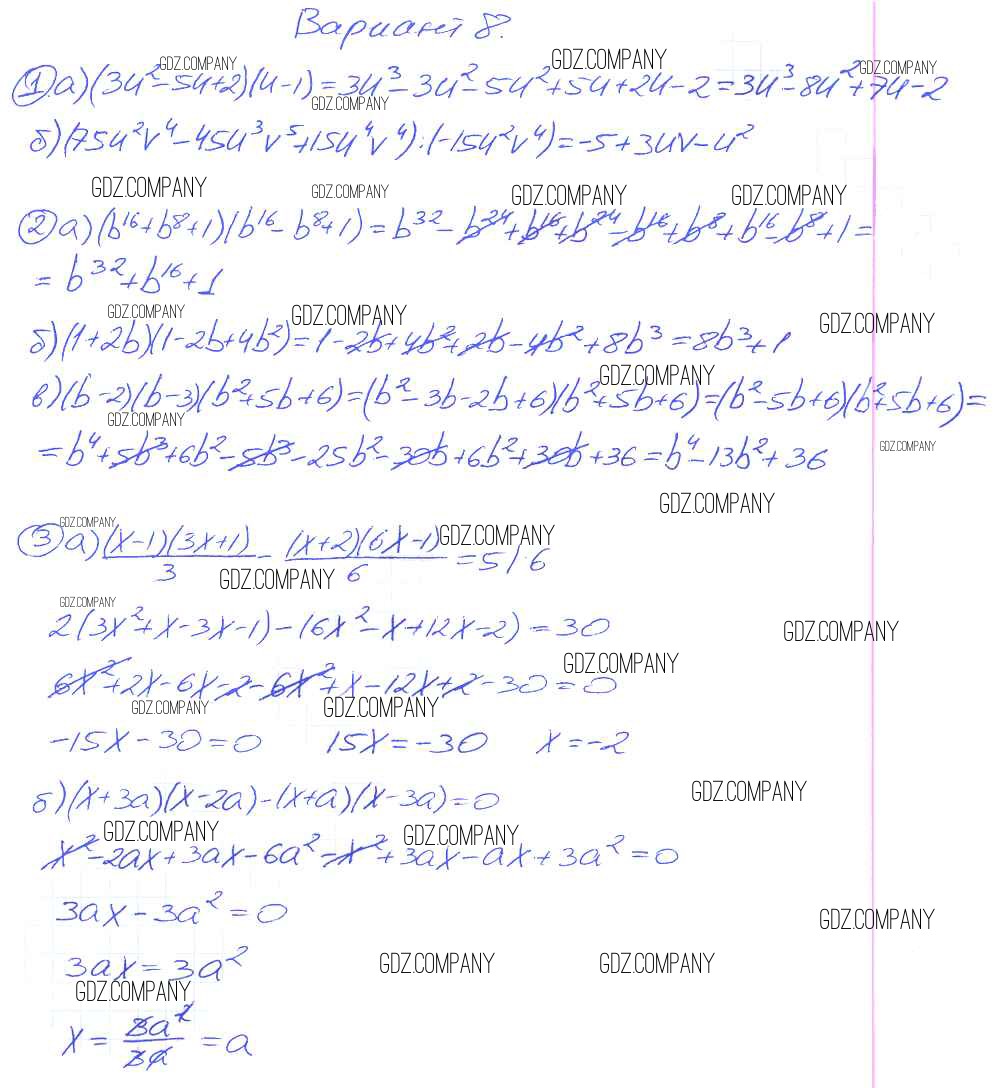 Вариант 8.
GDZ.COMPANY GDZ.COMPANY GDZ.COMPANY
① а) (3u² - 5u + 2)(u - 1) = 3u³ - 3u² - 5u² + 5u + 2u - 2 = 3u³ - 8u² + 7u - 2
GDZ.COMPANY
б) (75u²v⁴ - 45u³v⁵ + 15u⁴v⁴) : (-15u²v⁴) = -5 + 3uv - u²
GDZ.COMPANY GDZ.COMPANY GDZ.COMPANY GDZ.COMPANY
② а) (b¹⁶ + b⁸ + 1)(b¹⁶ - b⁸ + 1) = b³² - b²⁴ + b¹⁶ + b²⁴ - b¹⁶ + b⁸ + b¹⁶ - b⁸ + 1 =
= b³² + b¹⁶ + 1
GDZ.COMPANY GDZ.COMPANY GDZ.COMPANY
б) (1 + 2b)(1 - 2b + 4b²) = 1 - 2b + 4b² + 2b - 4b² + 8b³ = 8b³ + 1
GDZ.COMPANY
в) (b - 2)(b - 3)(b² + 5b + 6) = (b² - 3b - 2b + 6)(b² + 5b + 6) = (b² - 5b + 6)(b² + 5b + 6) =
GDZ.COMPANY GDZ.COMPANY
= b⁴ + 5b³ + 6b² - 5b³ - 25b² - 30b + 6b² + 30b + 36 = b⁴ - 13b² + 36
GDZ.COMPANY
GDZ.COMPANY GDZ.COMPANY
③ а) (x - 1)(3x + 1)/3 - (x + 2)(6x - 1)/6 = 5 | · 6
GDZ.COMPANY
GDZ.COMPANY GDZ.COMPANY
2(3x² + x - 3x - 1) - (6x² - x + 12x - 2) = 30
GDZ.COMPANY
6x² + 2x - 6x - 2 - 6x² + x - 12x + 2 - 30 = 0
GDZ.COMPANY GDZ.COMPANY
-15x - 30 = 0 15x = -30 x = -2
GDZ.COMPANY
б) (x + 3a)(x - 2a) - (x + a)(x - 3a) = 0
GDZ.COMPANY GDZ.COMPANY
x² - 2ax + 3ax - 6a² - x² + 3ax - ax + 3a² = 0
3ax - 3a² = 0
GDZ.COMPANY
3ax = 3a²
GDZ.COMPANY GDZ.COMPANY
GDZ.COMPANY
x = 3a²/3a = a